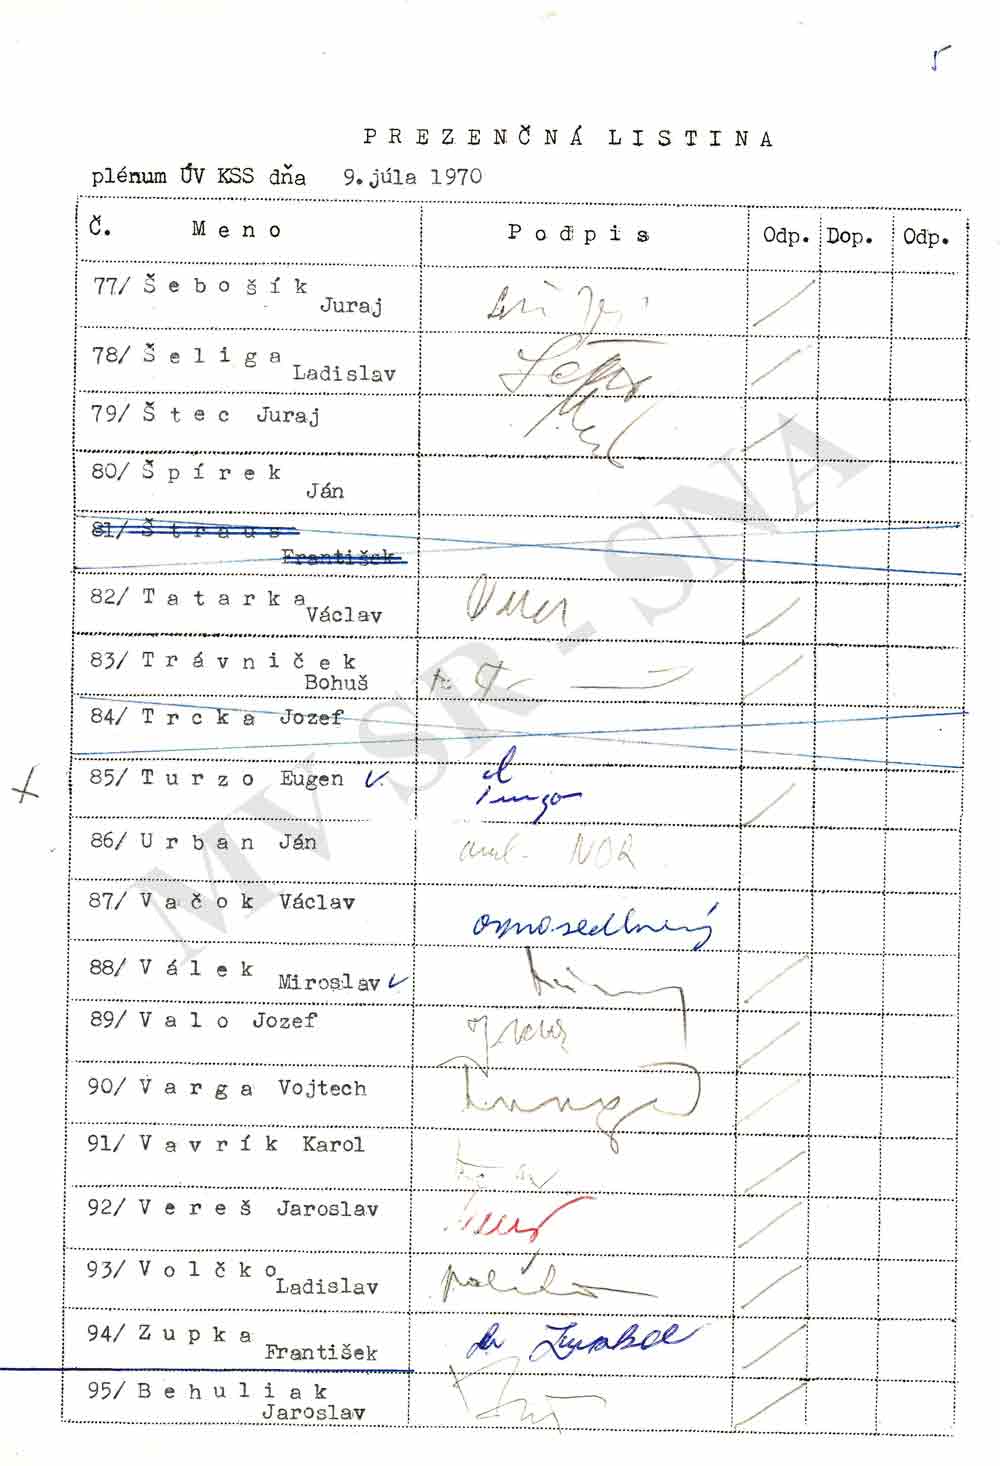 5
P R E Z E N Č N Á L I S T I N A
plénum ÚV KSS dňa 9. júla 1970
Č. M e n o P o d p i s Odp. Dop. Odp.
77/ Š e b o š í k
Juraj
78/ Š e l i g a
Ladislav
79/ Š t e c Juraj
80/ Š p í r e k
Ján
81/ Š t r a u s
František
82/ T a t a r k a
Václav
83/ T r á v n i č e k
Bohuš
84/ T r c k a Jozef
85/ T u r z o Eugen
86/ U r b a n Ján NOR
87/ V a č o k Václav
ospravedlnený
88/ V á l e k
Miroslav
89/ V a l o Jozef
90/ V a r g a Vojtech
91/ V a v r í k Karol
92/ V e r e š Jaroslav
93/ V o l č k o
Ladislav
94/ Z u p k a
František
95/ B e h u l i a k
Jaroslav
MV SR - SNA